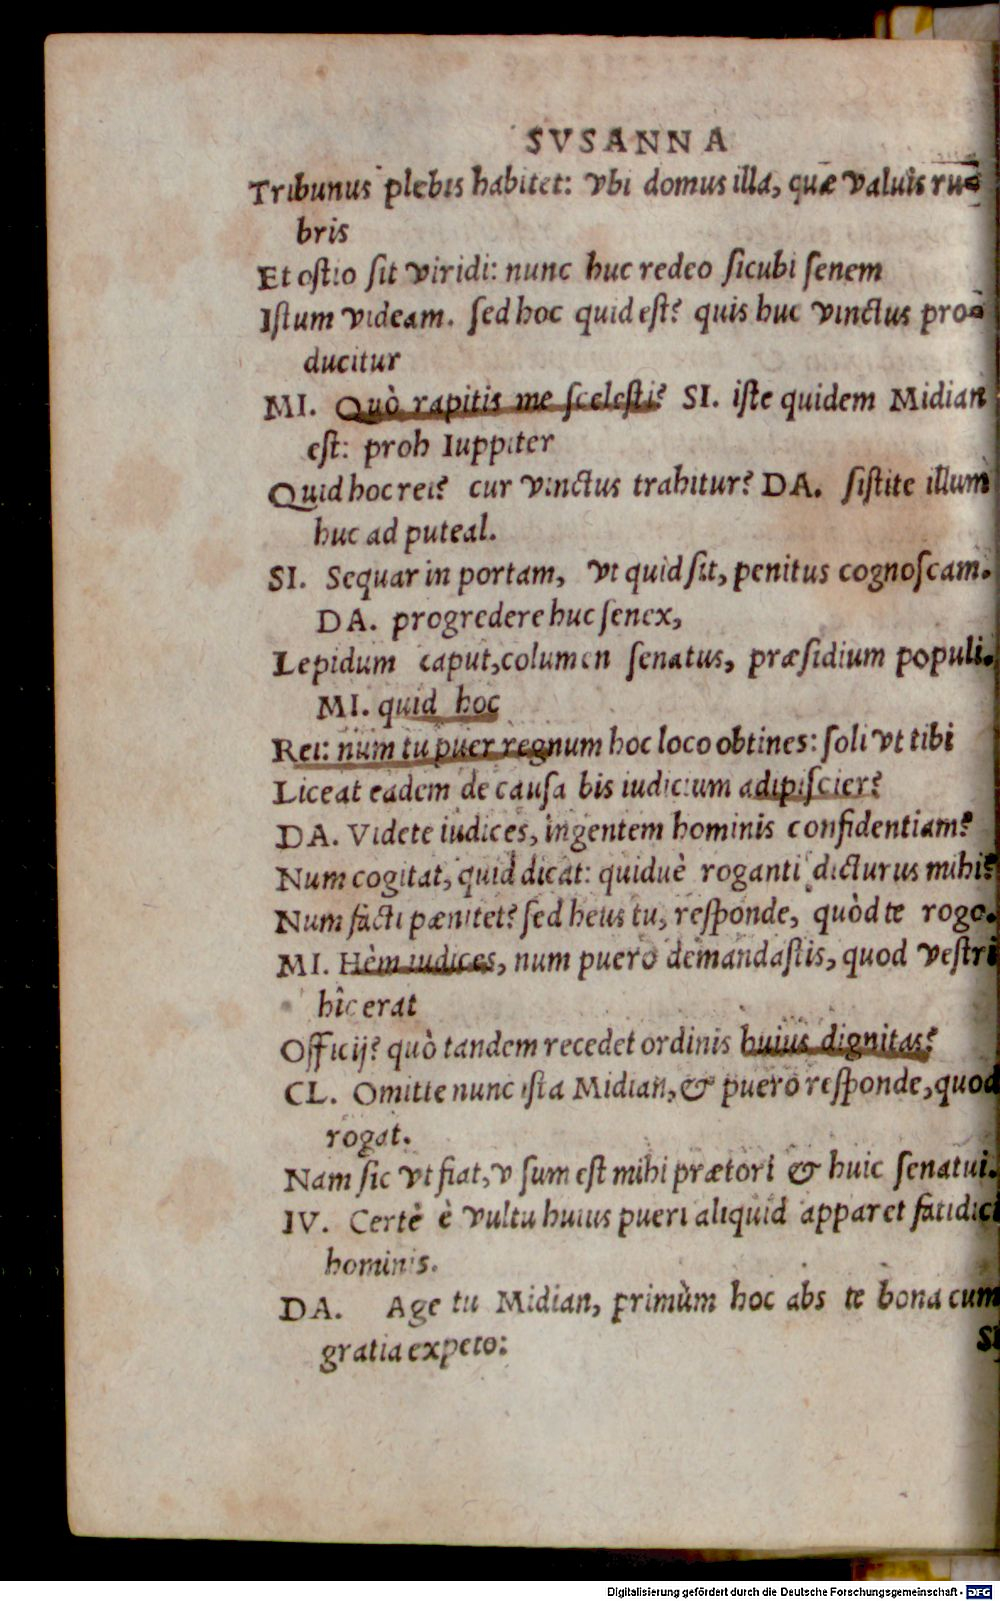 SVSANNA
Tribunus plebis habitet: vbi domus illa, quæ valuis ru-
bris
Et ostio sit viridi: nunc huc redeo sicubi senem
Istum videam. sed hoc quid est? quis huc vinctus pro-
ducitur
MI. Quò rapitis me scelesti? SI. iste quidem Midian
est: proh Iuppiter
Quid hoc rei? cur vinctus trahitur? DA. sistite illum
huc ad puteal.
SI. Sequar in portam, vt quid sit, penitus cognoscam.
DA. progredere huc senex,
Lepidum caput, columen senatus, præsidium populi.
MI. quid hoc
Rei: num tu puer regnum hoc loco obtines: soli vt tibi
Liceat eadem de causa bis iudicium adipiscier?
DA. Videte iudices, ingentem hominis confidentiam?
Num cogitat, quid dicat: quiduè roganti dicturus mihi?
Num facti pænitet? sed heus tu, responde, quòd te rogo.
MI. Hèm iudices, num puero demandastis, quod vestri
hîc erat
Officij? quò tandem recedet ordinis huius dignitas?
CL. Omitte nunc ista Midian, & puero responde, quod
rogat.
Nam sic vt fiat, v sum est mihi prætori & huic senatui.
IV. Certè è vultu huius pueri aliquid apparet fatidici
hominis.
DA. Age tu Midian, primùm hoc abs te bona cum
gratia expeto:
Si
Digitalisierung gefördert durch die Deutsche Forschungsgemeinschaft - DFG